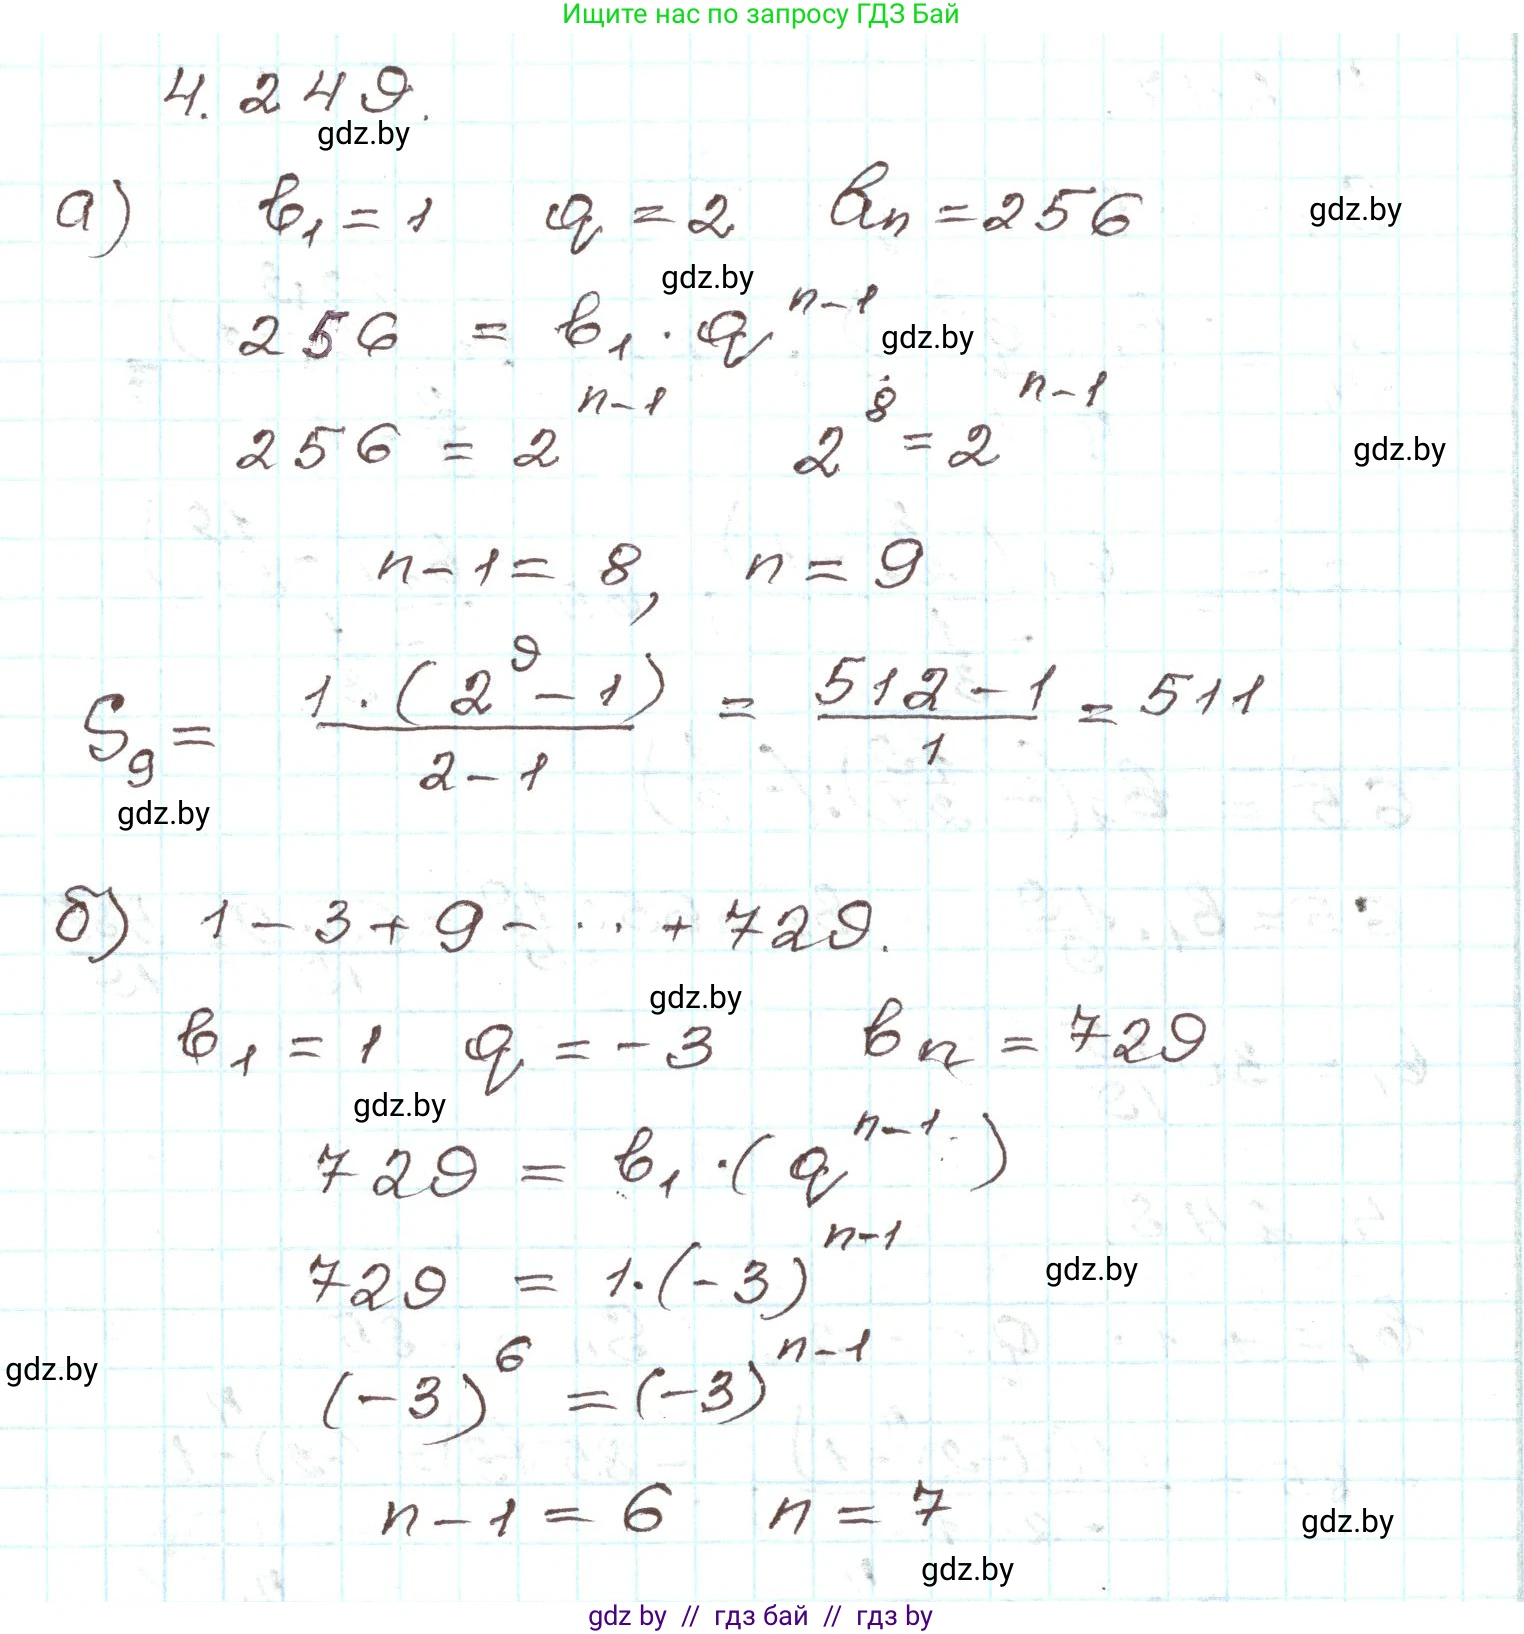 Ищите нас по запросу ГДЗ Бай
4.249.
gdz.by
а) b₁ = 1 q = 2 bₙ = 256 gdz.by
gdz.by
256 = b₁ · qⁿ⁻¹ gdz.by
256 = 2ⁿ⁻¹ 2⁸ = 2ⁿ⁻¹ gdz.by
n-1 = 8, n = 9
S₉ = 1·(2⁹-1)/(2-1) = (512-1)/1 = 511
gdz.by
б) 1 - 3 + 9 - ... + 729.
gdz.by
b₁ = 1 q = -3 bₙ = 729
gdz.by
729 = b₁ · (qⁿ⁻¹)
729 = 1·(-3)ⁿ⁻¹ gdz.by
gdz.by (-3)⁶ = (-3)ⁿ⁻¹
n-1 = 6 n = 7 gdz.by
gdz.by
gdz by // гдз бай // гдз by